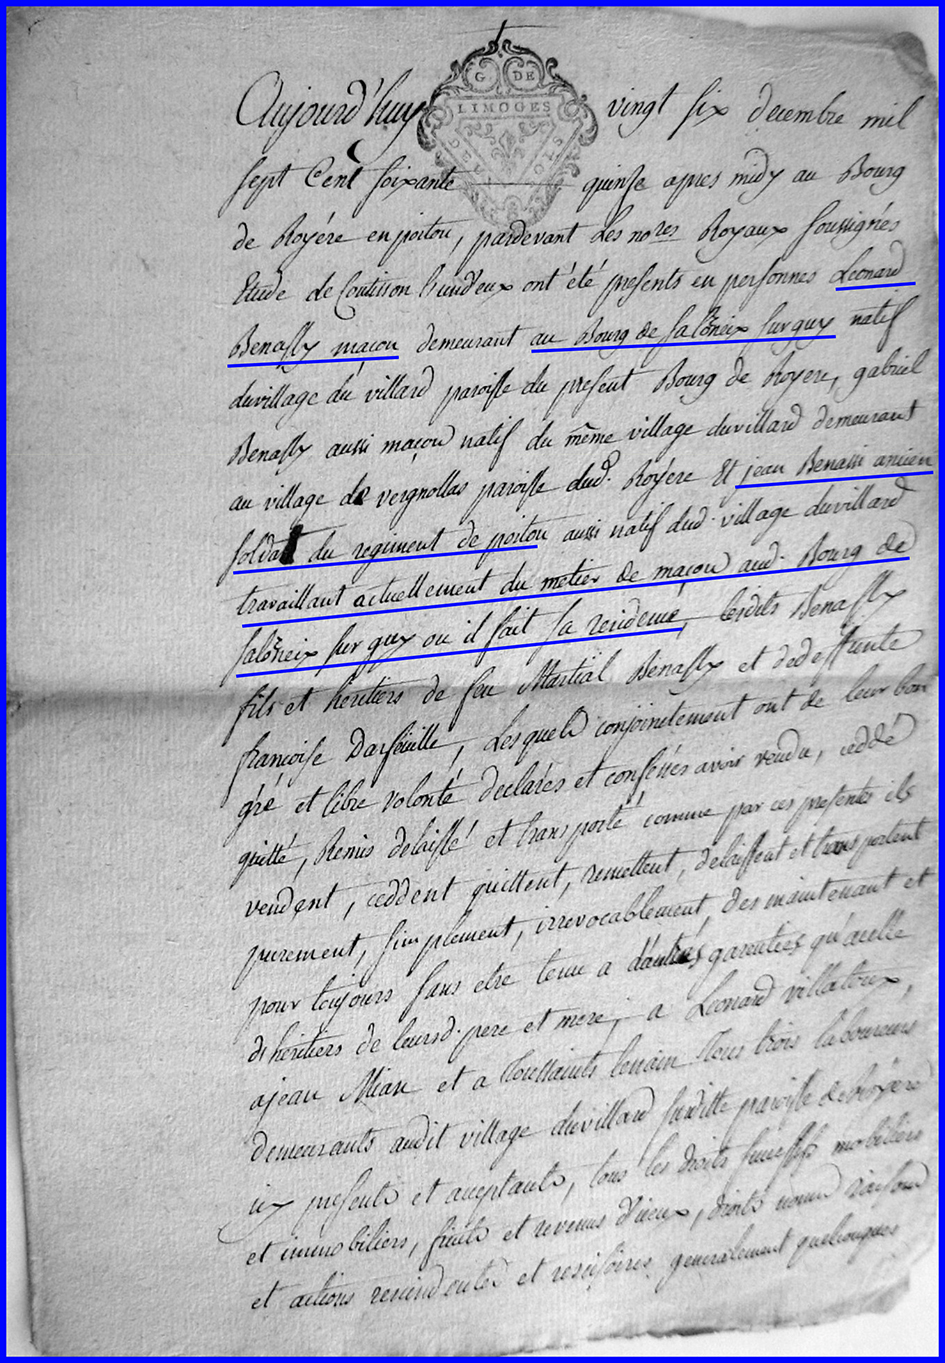 G. DE
LIMOGES
Aujourd'huy vingt six decembre mil
sept Cent soixante quinse apres midy au Bourg
de Royére en poitou, pardevant Les nores Royaux soussignés
Etude de Coutisson l'un d'eux ont été presents en personnes Leonard
Benassy maçon demeurant au Bourg de Salôneix sur guy natif
du village du villard paroisse du present Bourg de Royere, gabriel
Benassy aussi maçon natif du même village du villard demeurant
au village de vergnollas paroisse dud. Royére Et jean Benassi ancien
soldat du regiment de poitou aussi natif dud. village du villard
travaillant actuellement du métier de maçon aud. Bourg de
Salôneix sur guy ou il fait sa residence, lesdits Benassy
fils et heritiers de feu Martial Benassy et de deffunte
françoise Darfeuille, Lesquels conjointement ont de leur bon
gré et libre volonté declarés et confessés avoir vendu, ceddé
quitté, Remis delaissé et transporté comme par ces presentes ils
vendent, ceddent quittent, remettent, delaissent et transportent
purement, simplement, irrevocablement, des maintenant et
pour toujours sans etre tenu a d'autres garenties qu'acelle
d'heritiers de leursd. pere et mere, a Leonard villatoux,
a jean Mian et a Toussaints tous trois laboureurs
demeurants audit village du villard susditte paroisse de Royére
icy presents et acceptants, tous les droits successifs mobiliers
et immobiliers, fruits et revenus d'iceux, droits noms raisons
et actions rescindentes et rescisoires generalement quelconques